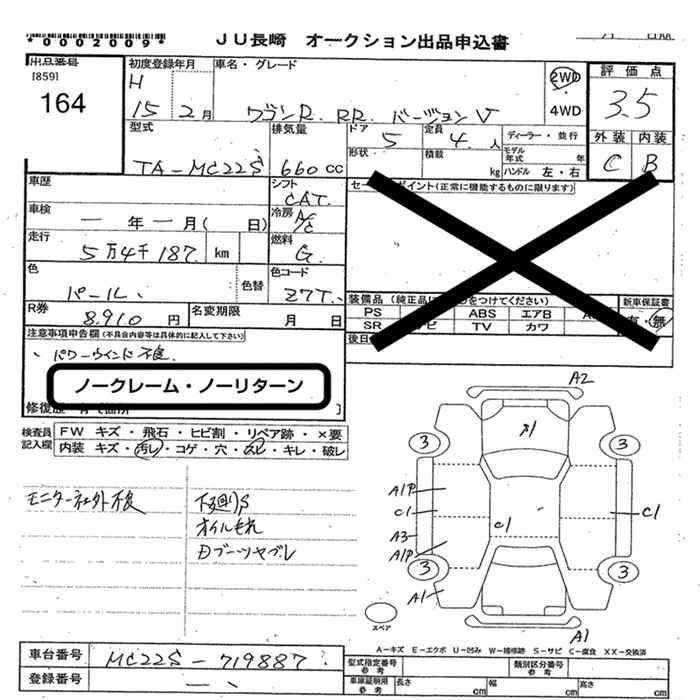 *0002009* JU長崎 オークション出品申込書
出品番号 初度登録年月 車名・グレード 評価点
[859] H 2WD
164 15 2月 ワゴンR RR バージョンV 4WD 3.5
型式 排気量 ドア 5 定員 4 人 ディーラー・並行 外装 内装
形状 積載 kg モデル年式 年 C B
TA-MC22S 660 cc ハンドル 左・右
車歴 シフト セールスポイント(正常に機能するものに限ります)
CAT
車検 一 年 一 月( 日) 冷房 A/C
走行 5万4千187 km 燃料 G
色 パール 色替 色コード Z7T
装備品 新車保証書
R券 8,910 円 名変期限 月 日 PS ABS エアB 有・無
SR TV カワ
注意事項申告欄(不具合内容等は具体的に記入して下さい) 後日
パワーウインド不良
ノークレーム・ノーリターン
修復歴
検査員記入欄 FW キズ・飛石・ヒビ割・リペア跡・×要
内装 キズ・汚レ・コゲ・穴・・キレ・破レ
モニター社外不良 下廻りS
オイルもれ
Dブーツヤブレ
A2
A1
3 3
A1P
C1 C1 C1
A3
A1P
3 3
A1
スペア A1
A-キズ E-エクボ U-凹み W-補修跡 S-サビ C-腐食 XX-交換済
車台番号 MC22S-719887 型式指定番号 参考 類別区分番号 参考
登録番号 車庫証明用 参考 長さ cm 幅 cm 高さ cm